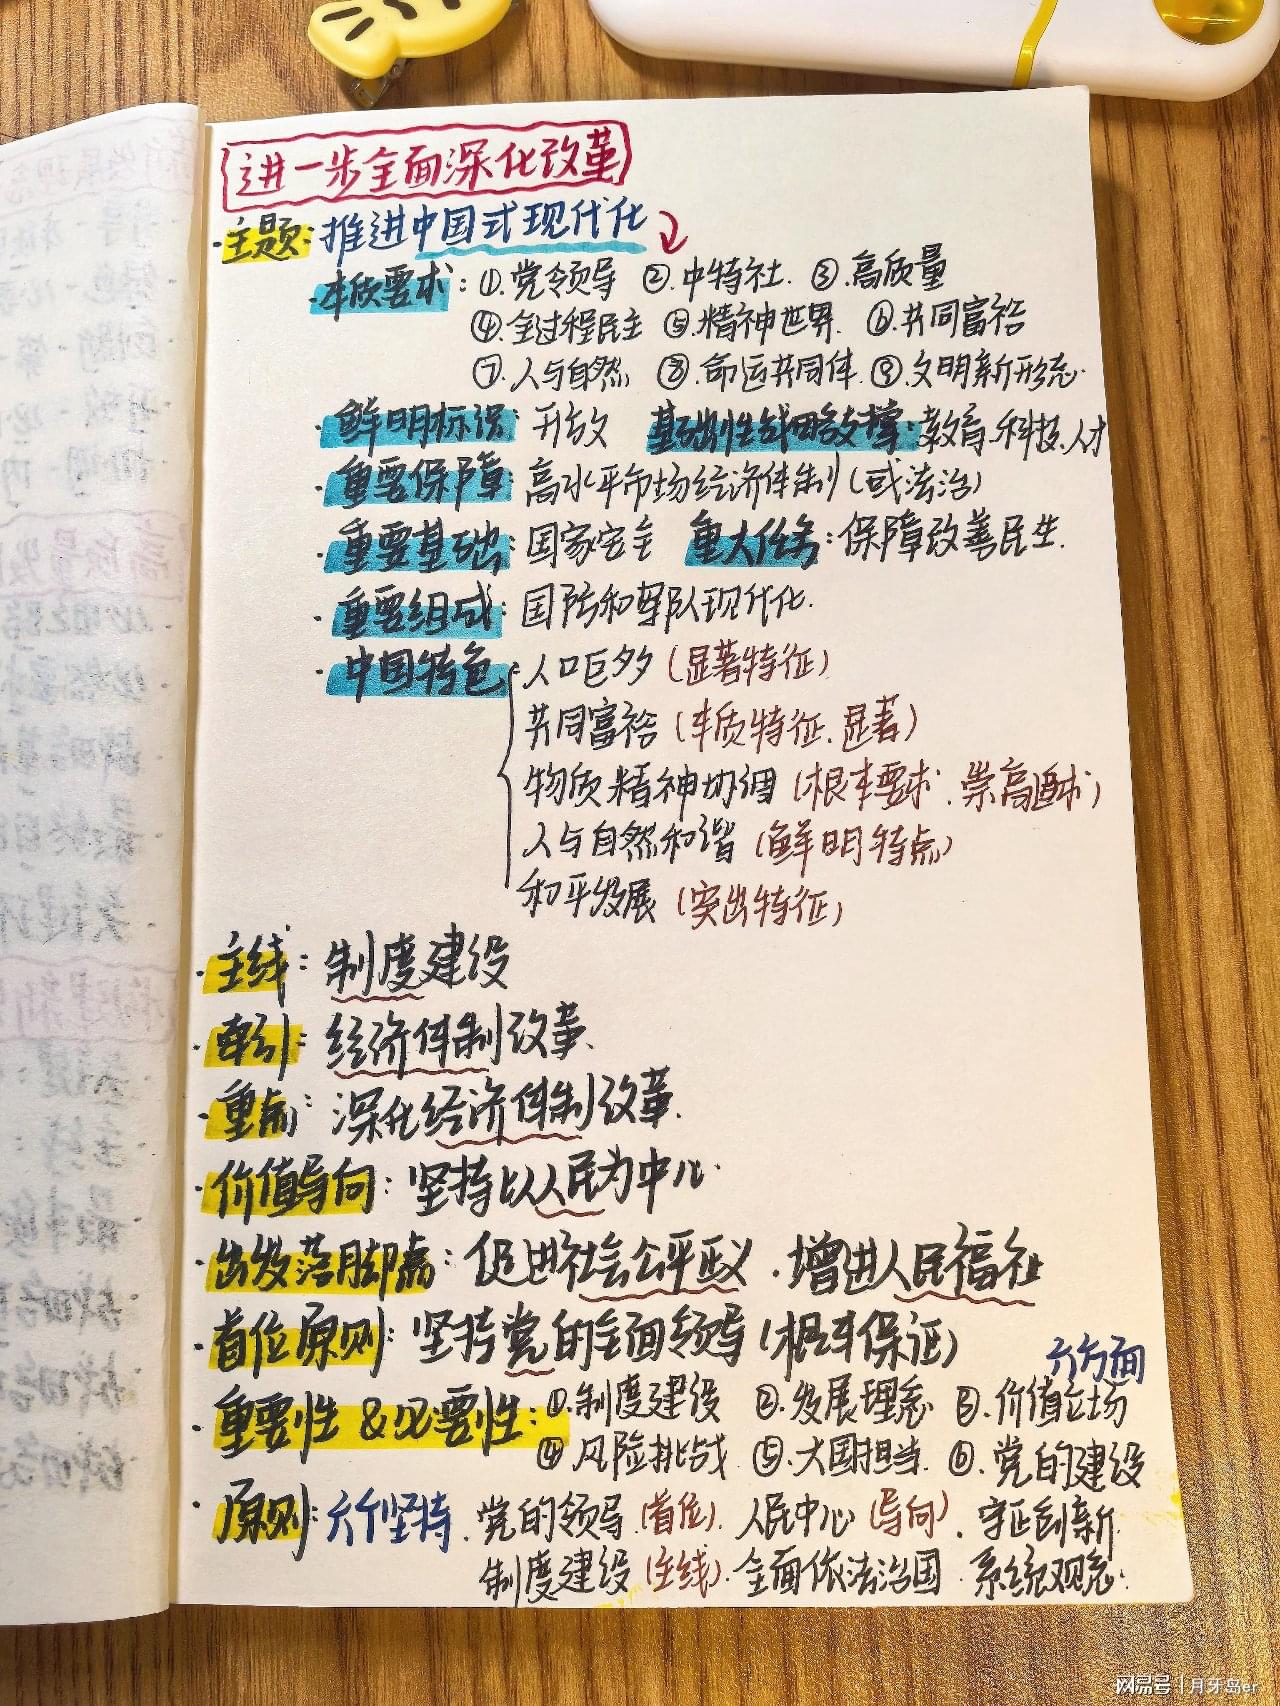 进一步全面深化改革
·主题:推进中国式现代化
·本质要求:①.党领导 ②.中特社. ③.高质量
④.全过程民主 ⑤.精神世界. ⑥.共同富裕
⑦.人与自然 ⑧.命运共同体. ⑨.文明新形态.
·鲜明标识:开放 基础性战略支撑:教育.科技.人才
·重要保障:高水平市场经济体制(或法治)
·重要基础:国家安全 重大任务:保障改善民生.
·重要组成:国防和军队现代化.
·中国特色 人口巨多(显著特征)
共同富裕(本质特征.显著)
物质精神协调(根本要求.崇高追求)
人与自然和谐(鲜明特点)
和平发展(突出特征)
·主线:制度建设
·牵引:经济体制改革.
·重点:深化经济体制改革.
·价值导向:坚持以人民为中心.
·出发落脚点:促进社会公平正义.增进人民福祉
·首位原则:坚持党的全面领导(根本保证)
六方面
·重要性&必要性:①.制度建设 ②.发展理念 ③.价值立场
④.风险挑战 ⑤.大国担当. ⑥.党的建设
·原则:六个坚持.党的领导(首位).人民中心(导向).守正创新.
制度建设(主线).全面依法治国.系统观念.
网易号 | 月牙岛er